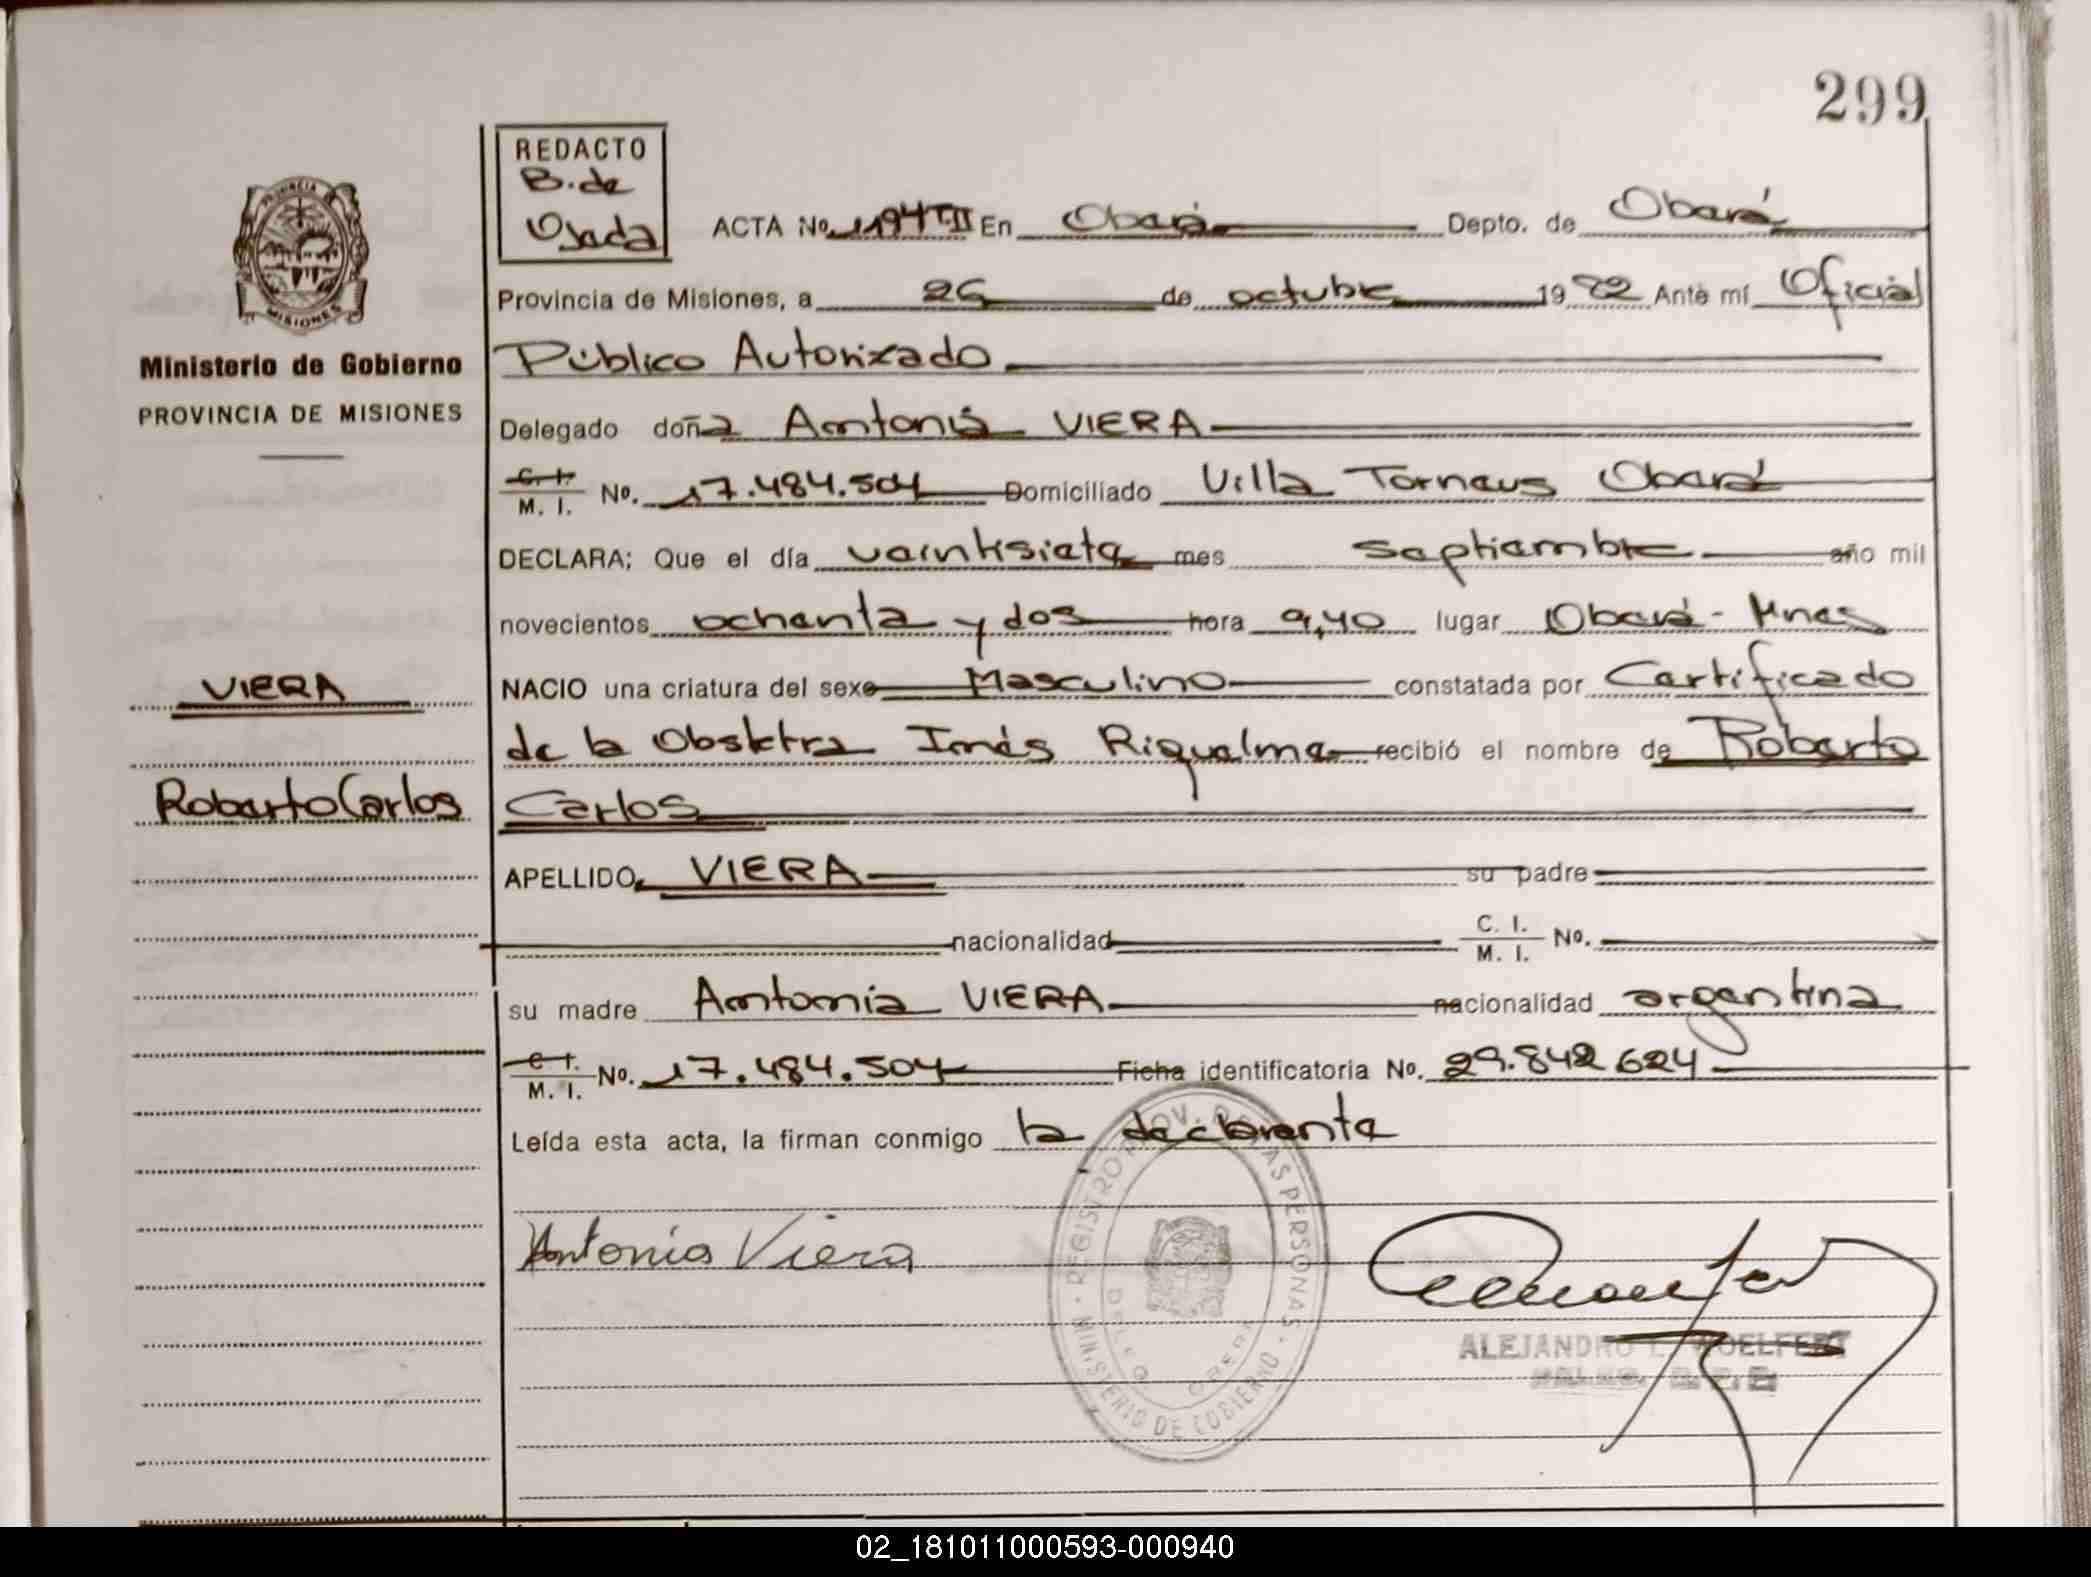 299
REDACTO
B. de
Ojeda
ACTA No. 1194 T-II En Oberá Depto. de Oberá
Provincia de Misiones, a 26 de octubre 1982 Ante mí Oficial
Público Autorizado
Delegado doña Antonia VIERA
C. I. M. I. No. 17.484.504 Domiciliado Villa Torneus Oberá
DECLARA; Que el día veintisiete mes septiembre año mil
novecientos ochenta y dos hora 9,40 lugar Oberá - Mnes
NACIO una criatura del sexo Masculino constatada por Certificado
de la Obstetra Inés Riquelme recibió el nombre de Roberto
Carlos
APELLIDO, VIERA su padre
nacionalidad C. I. M. I. No.
su madre Antonia VIERA nacionalidad argentina
C. I. M. I. No. 17.484.504 Ficha identificatoria No. 29.842 624
Leída esta acta, la firman conmigo la declarante
Antonia Viera
ALEJANDRO L. WOELFERT
REGISTRO PROV. DE LAS PERSONAS · MINISTERIO DE GOBIERNO
PROVINCIA
MISIONES
Ministerio de Gobierno
PROVINCIA DE MISIONES
VIERA
Roberto Carlos
02_181011000593-000940